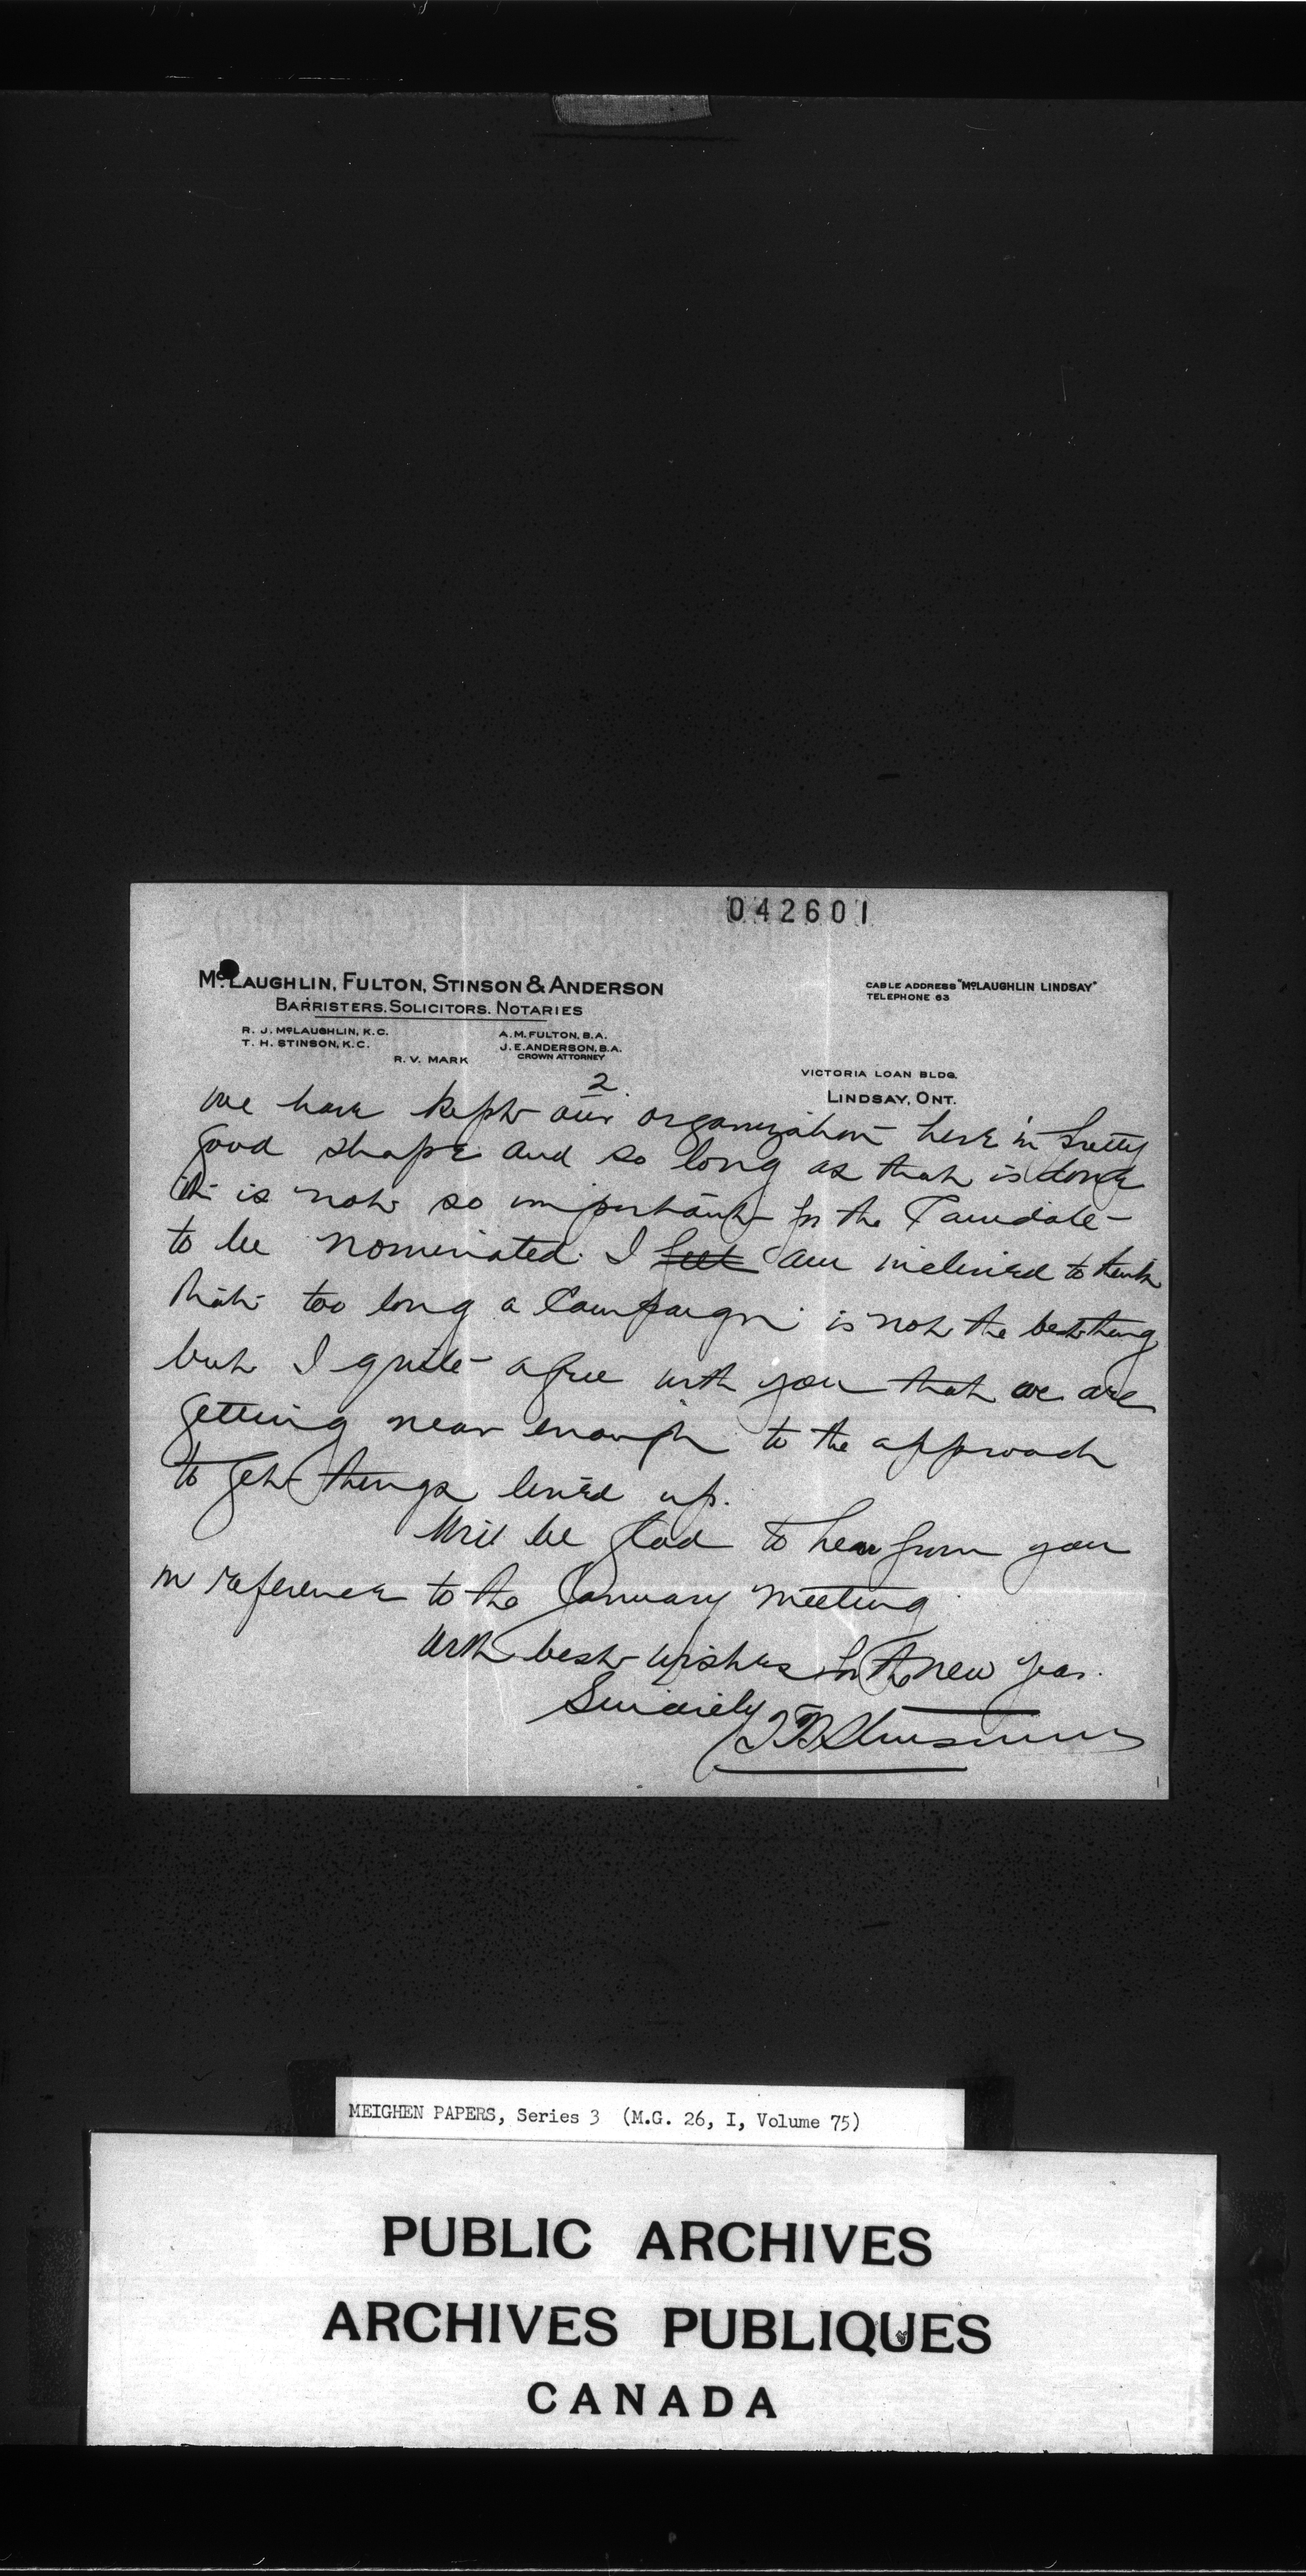 042601
McLAUGHLIN, FULTON, STINSON & ANDERSON
BARRISTERS. SOLICITORS. NOTARIES
CABLE ADDRESS "McLAUGHLIN LINDSAY"
TELEPHONE 63
R. J. McLAUGHLIN, K.C.
T. H. STINSON, K.C.
A. M. FULTON, B.A.
J. E. ANDERSON, B.A.
CROWN ATTORNEY
R. V. MARK
VICTORIA LOAN BLDG.
LINDSAY, ONT.
2
we have kept our organization here in pretty
good shape and so long as that is done
it is not so important for the Candidate
to be nominated. I felt am inclined to think
that too long a Campaign is not the best thing
but I quite agree with you that we are
getting near enough to the approach
to get things lined up.
Will be glad to hear from you
in reference to the January meeting
With best wishes for the new year.
Sincerely
T H Stinson
MEIGHEN PAPERS, Series 3 (M.G. 26, I, Volume 75)
PUBLIC ARCHIVES
ARCHIVES PUBLIQUES
CANADA